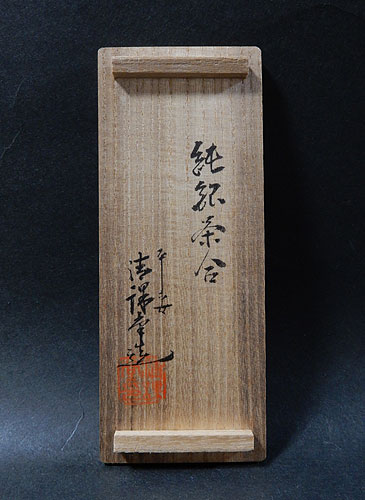 純銀茶合
平安
清課堂造